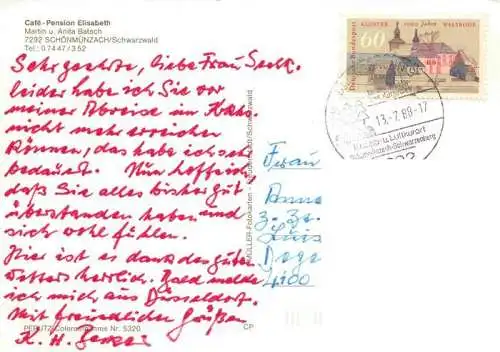 Café-Pension Elisabeth
Martin u. Anita Batsch
7292 SCHÖNMÜNZACH/Schwarzwald
Tel.: 0 74 47 / 3 52
Sehr geehrte, liebe Frau
leider habe ich Sie vor
meiner Abreise im
nicht mehr erreichen
können, das habe ich sehr
bedauert. Nun hoffe ich,
daß Sie alles bisher gut
überstanden haben und
sich wohl fühlen.
Hier ist es dank des guten
Wetters herrlich. Bald melde
ich mich aus Düsseldorf.
Mit freundlichen Grüßen
K. H.
PERUTZ-Coloraufnahme Nr. 5320
CP
MÜLLER-Fotokarten
Schönmünzach/Schwarzwald
Deutsche Bundespost
KLOSTER 1000 Jahre WALSRODE
60
13.-7.89-17
Kneipp- u. Luftkurort
Schönmünzach-Schwarzenberg
Frau
Anne
z. Zt.
4100